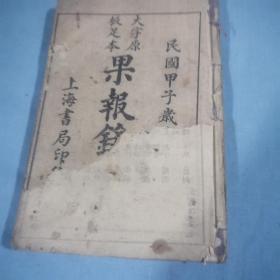 民國甲子歲
大字原
板足本
果報錄
上海書局印